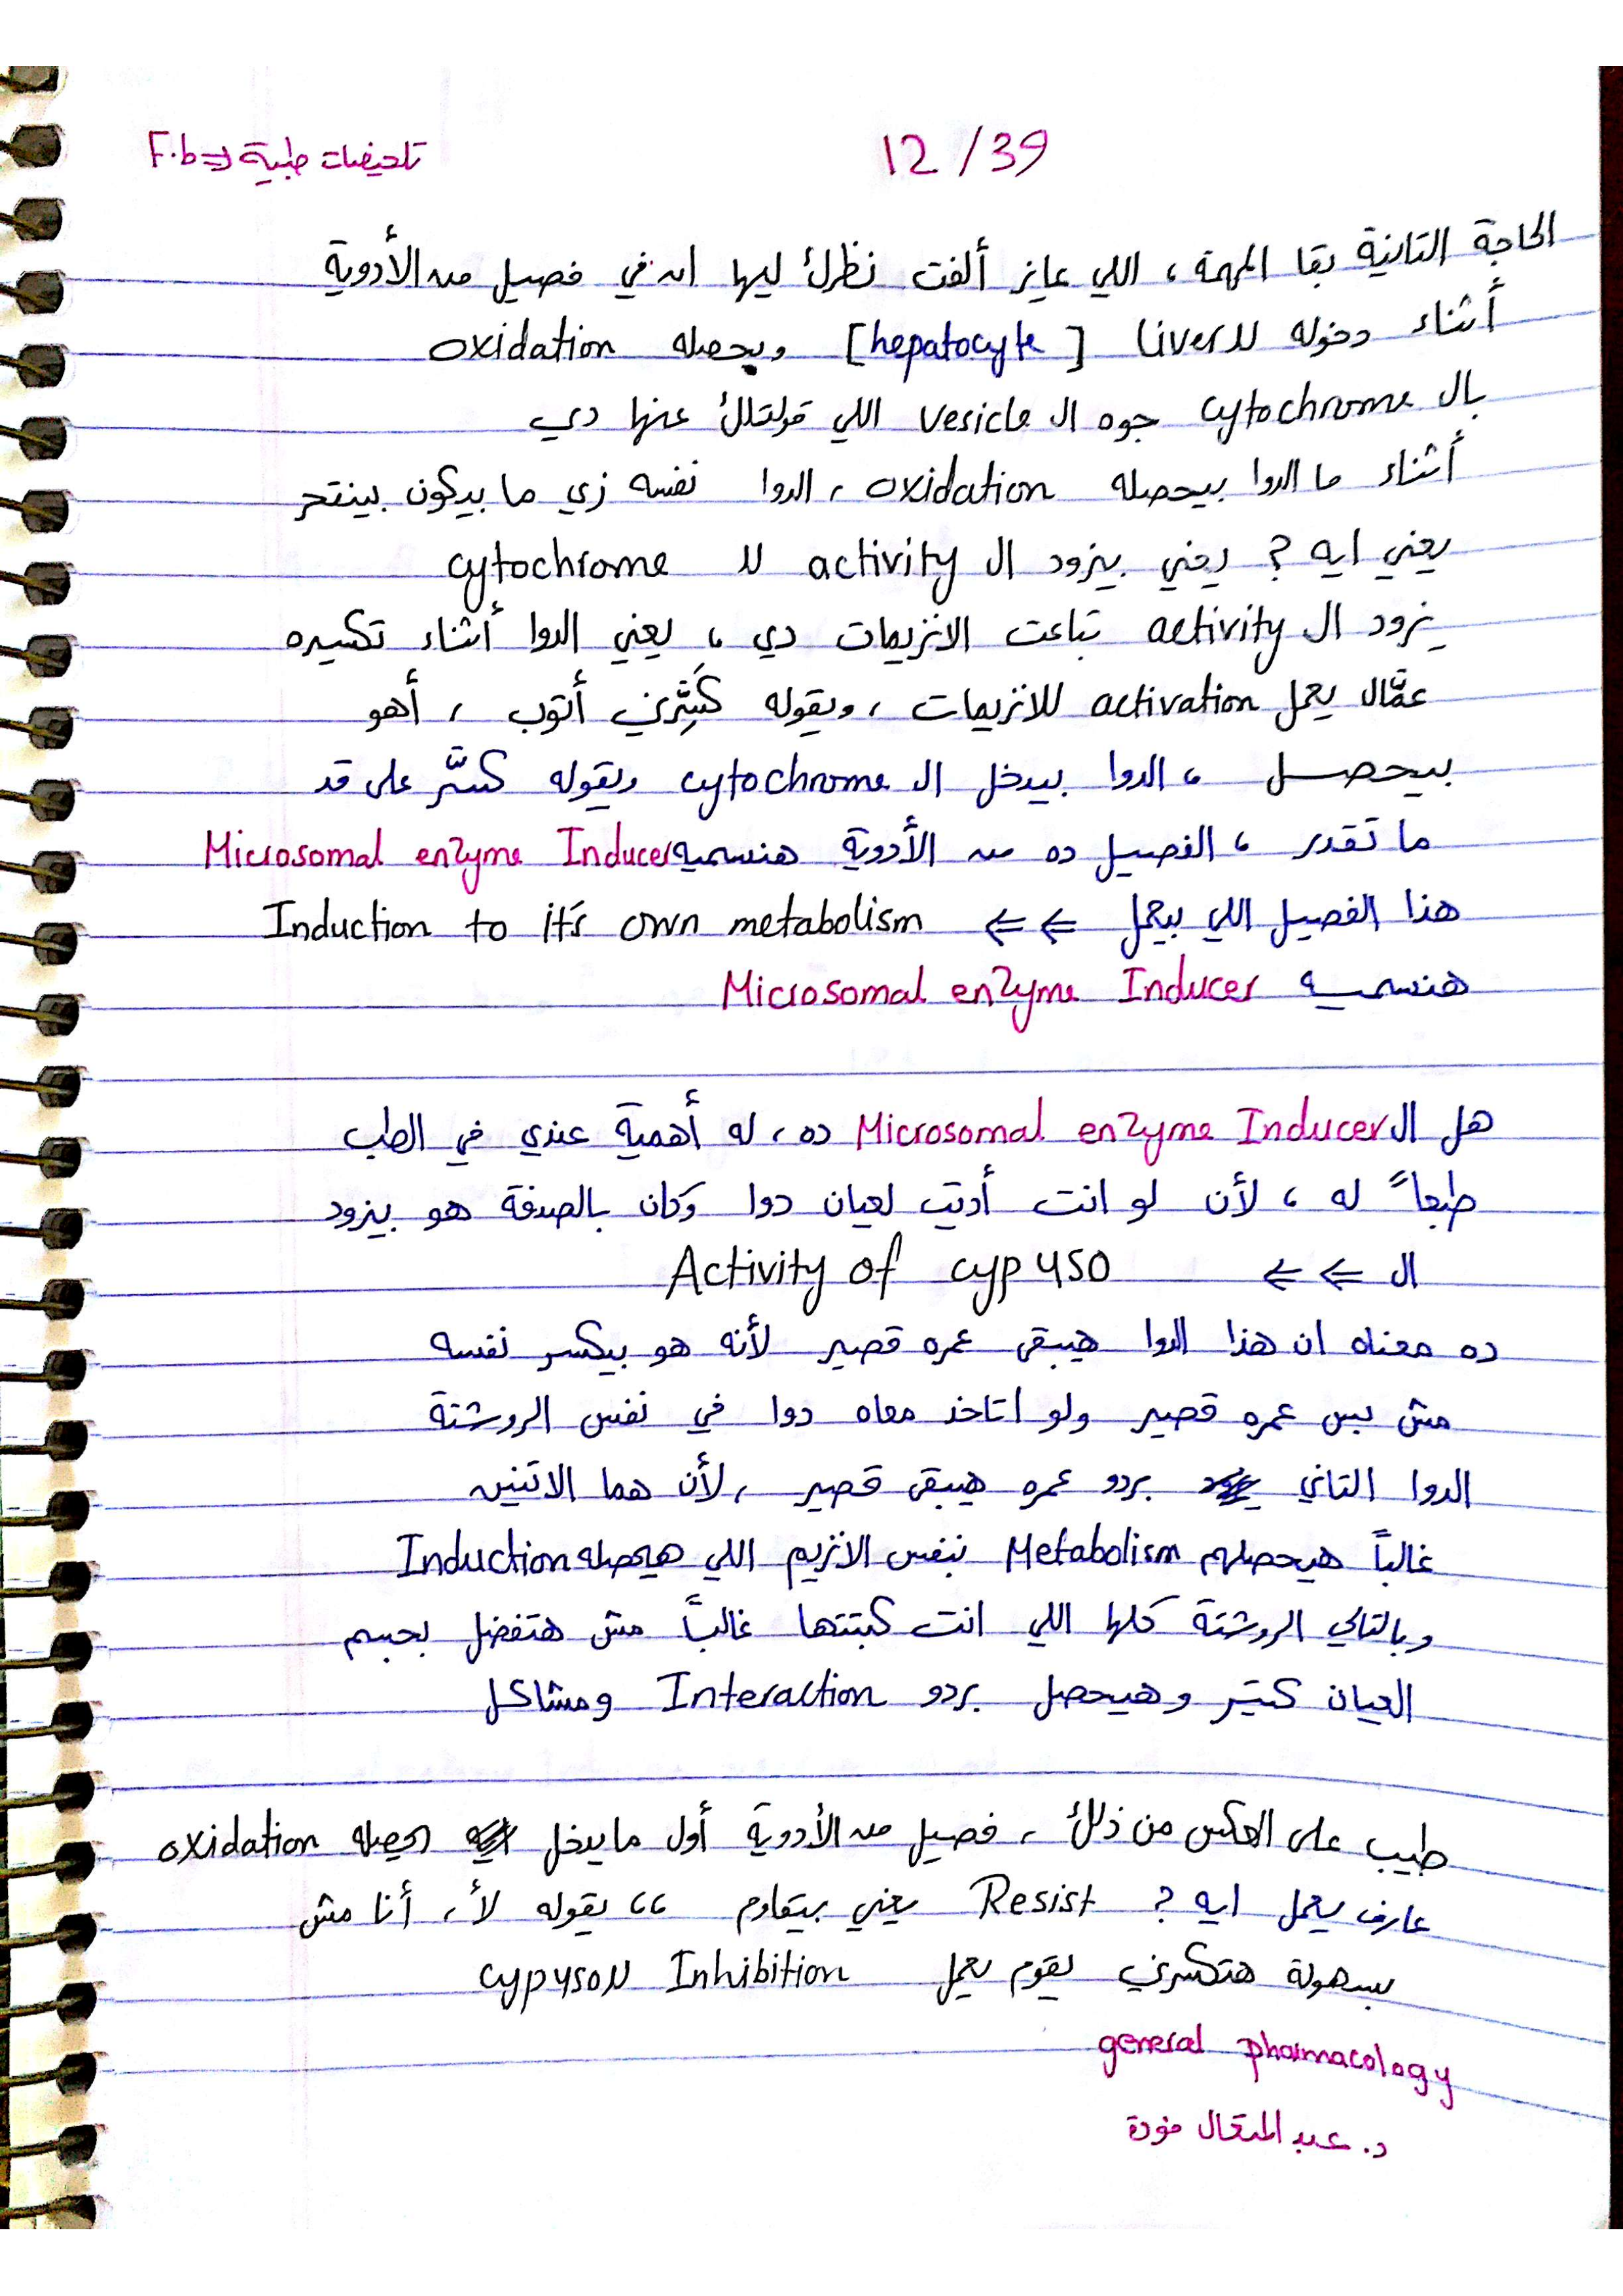 تلخيصات طبية <= F.b
12/39
الحاجة التانية بقا المهمة، اللي عايز ألفت نظرك ليها ان في فصيل من الأدوية
أثناء دخوله لل liver [hepatocyte] وبيحصله oxidation
بال cytochrome جوه ال vesicle اللي قولتلك عنها دي
أثناء ما الدوا بيحصله oxidation، الدوا نفسه زي ما بيكون بينتحر
يعني ايه ? يعني بيزود ال activity لل cytochrome
يزود ال activity بتاعت الانزيمات دي، يعني الدوا أثناء تكسيره
عمَّال يعمل activation للانزيمات، ويقوله كَسَّرني أتوب، أهو
بيحصل، الدوا بيدخل ال cytochrome ويقوله كسَّر على قد
ما تقدر، الفصيل ده من الأدوية هنسميه Microsomal enzyme Inducer
هذا الفصيل اللي بيعمل <= <= Induction to it's own metabolism
هنسميه Microsomal enzyme Inducer
هل ال Microsomal enzyme Inducer ده، له أهمية عندي في الطب
طبعاً له، لأن لو انت أديت لعيان دوا وكان بالصدفة هو بيزود
ال <= <= Activity of cyp450
ده معناه ان هذا الدوا هيبقى عمره قصير لأنه هو بيكسر نفسه
مش بس عمره قصير ولو اتاخد معاه دوا في نفس الروشتة
الدوا التاني بردو عمره هيبقى قصير، لأن هما الاتنين
غالباً هيحصلهم Metabolism بنفس الانزيم اللي هيحصله Induction
وبالتالي الروشتة كلها اللي انت كبتتها غالباً مش هتفضل بجسم
العيان كتير وهيحصل بردو Interaction ومشاكل
طيب على العكس من ذلك، فصيل من الأدوية أول ما يدخل يحصله oxidation
عارف يعمل ايه ? Resist يعني بيقاوم،، يقوله لأ، أنا مش
بسهولة هتكسرني يقوم يعمل Inhibition لل cyp450
general pharmacology
د. عبد المتعال فودة